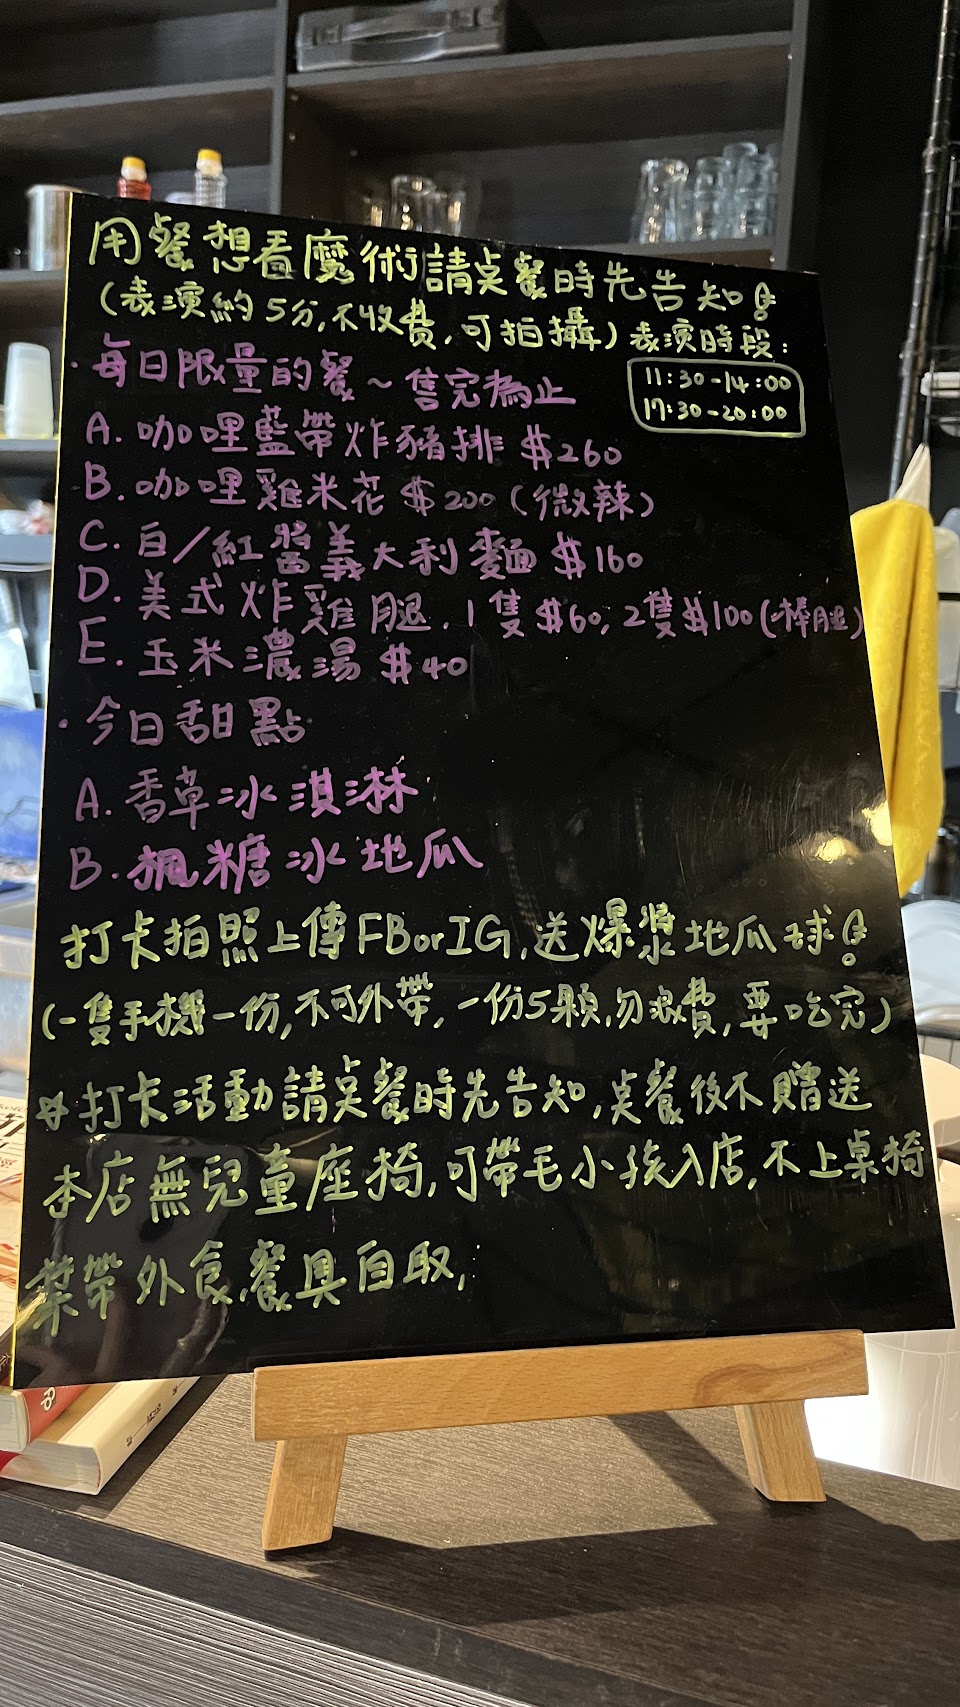 用餐想看魔術請桌餐時先告知!
(表演約5分,不收費,可拍攝)表演時段:
11:30-14:00
17:30-20:00
·每日限量的餐~售完為止
A.咖哩藍帶炸豬排 $260
B.咖哩雞米花 $200(微辣)
C.白/紅醬義大利麵 $160
D.美式炸雞腿.1隻$60,2隻$100(棒腿)
E.玉米濃湯 $40
·今日甜點
A.香草冰淇淋
B.楓糖冰地瓜
打卡拍照上傳FBorIG,送爆漿地瓜球!
(一隻手機一份,不可外帶,一份5顆,勿浪費,要吃完)
☆打卡活動請桌餐時先告知,桌餐後不贈送
本店無兒童座椅,可帶毛小孩入店,不上桌椅
禁帶外食,餐具自取,